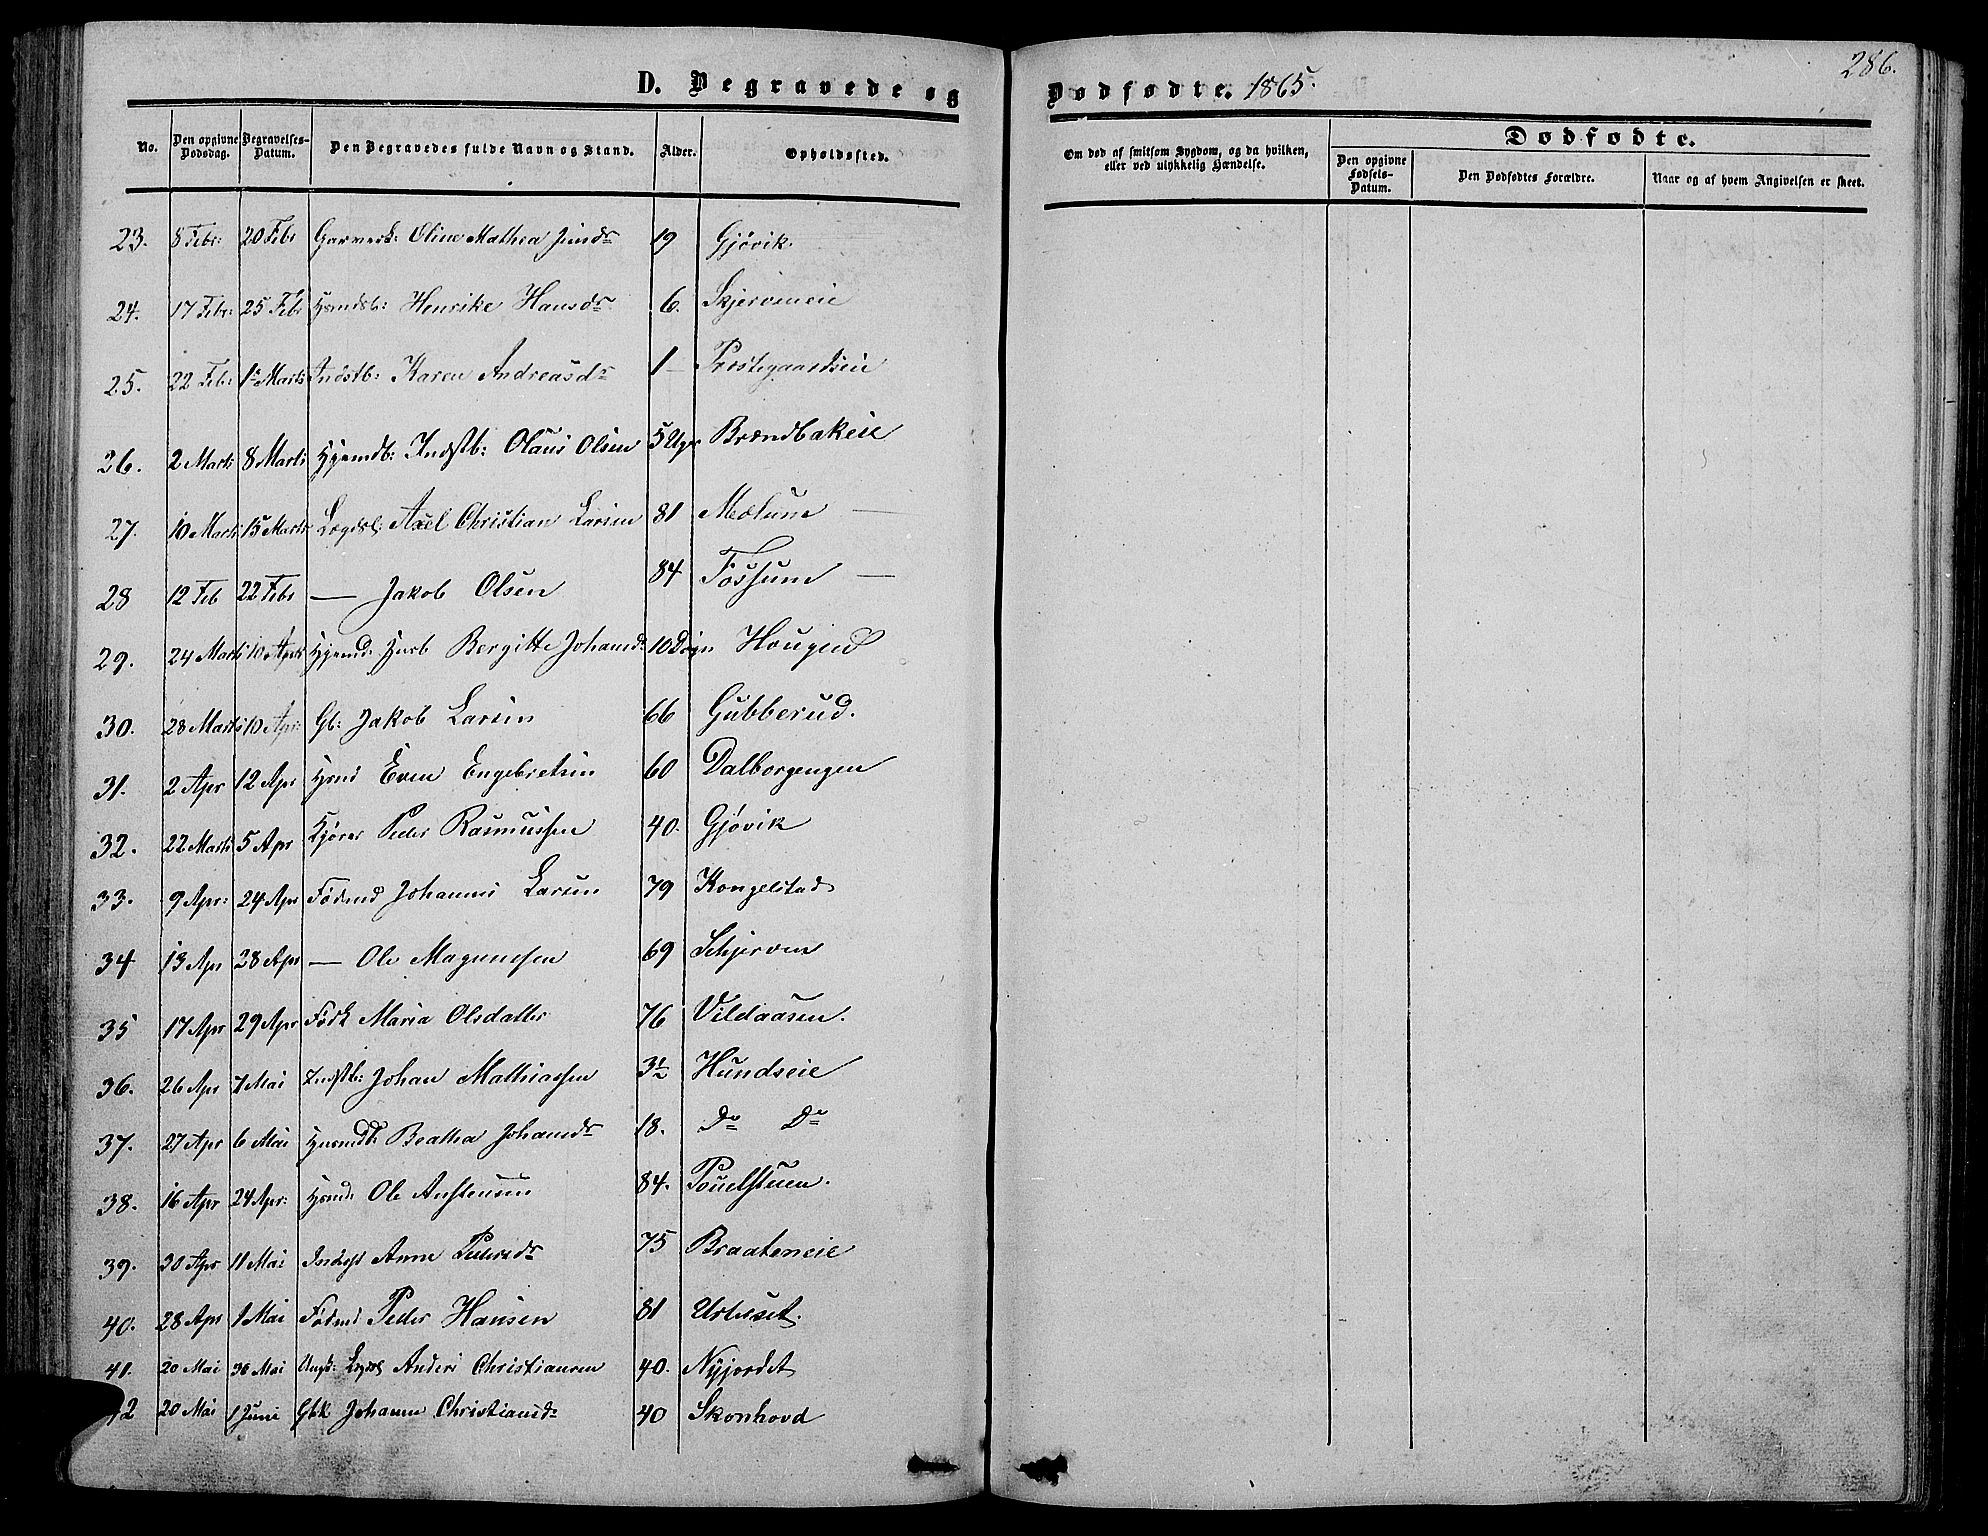 286.
D. Begravede og Dødfødte. 1865.
No. Den opgivne Dødsdag. Begravelses-Datum. Den Begravedes fulde Navn og Stand. Alder. Opholdssted. Om død af smitsom Sygdom, og da hvilken, eller ved ulykkelig Hændelse. Dødfødte. Den opgivne Fødsels-Datum. Den Dødfødtes Forældre. Naar og af hvem Angivelsen er skeet.
23. 8 Febr: 20 Febr Oline Mathea 19 Gjøvik.
24. 17 Febr: 25 Febr Henrike Hansdr 6. Skjervemeie
25. 22 Feb: 1 Marts Indstb: Karen Andreasdr 1 Prestegaardseie
26. 2 Marts 8 Marts Indstb: Olaus Olsen 5 Uger Brændbakeie
27. 10 Marts 15 Marts Lægdsl: Axel Christian Larsen 81 Mælum —
28 12 Feb 22 Febr — Jakob Olsen 84 Fossum —
29. 24 Marts 10 Apr Bergitte Johansd: 10 Døgn Hougen
30. 28 Marts 10 Apr: Gb: Jakob Larsen 66 Gubberud.
31. 2 Apr 12 Apr Hsmd Even Engebretsen 60 Dalborgengen
32. 22 Marts 5 Apr Peder Rasmussen 40. Gjøvik
33. 9 Apr: 24 Apr Fødmd Johannes Larsen 79 Kongelstad
34 13 Apr 28 Apr — Ole Magnussen 69 Schjerven
35 17 Apr 29 Apr Fødk Maria Olsdatter 76 Vildaasen.
36. 26 Apr 7 Mai Indstb: Johan Mathiassen 3½ Hundseie
37. 27 Apr 6 Mai Beathe Johansdr 18. Do Do
38. 16 Apr 24 Apr: Hsmd: Ole Anstensen 84. Pouelstuen.
39. 30 Apr 11 Mai Indst Anne Pedersdr 75 Braateneie
40. 28 Apr 1 Mai Fødmd Peder Hansen 81
41. 20 Mai 30 Mai Ungk: Lægdsl Anders Christiansen 40. Nyjordet
42 20 Mai 1 Juni Gbk Johanne Christiansdr 40 Skonhovd